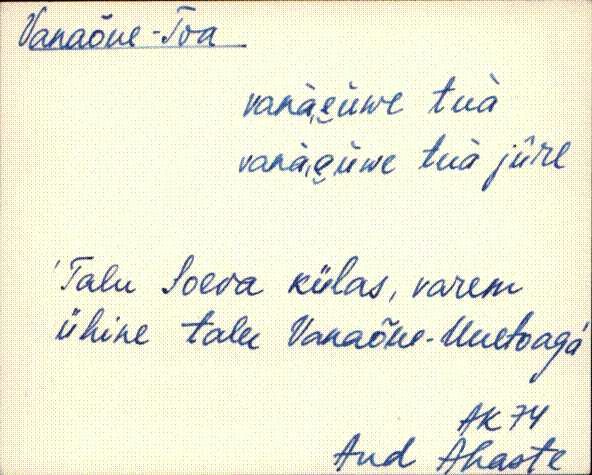 Vanaõue-Toa
vanàe̮ùwe tuà
vanàe̮ùwe tuà jűre
'Talu Soeva külas, varem
ühine talu Vanaõue-Uuetoaga'
AK 74
And Ahaste